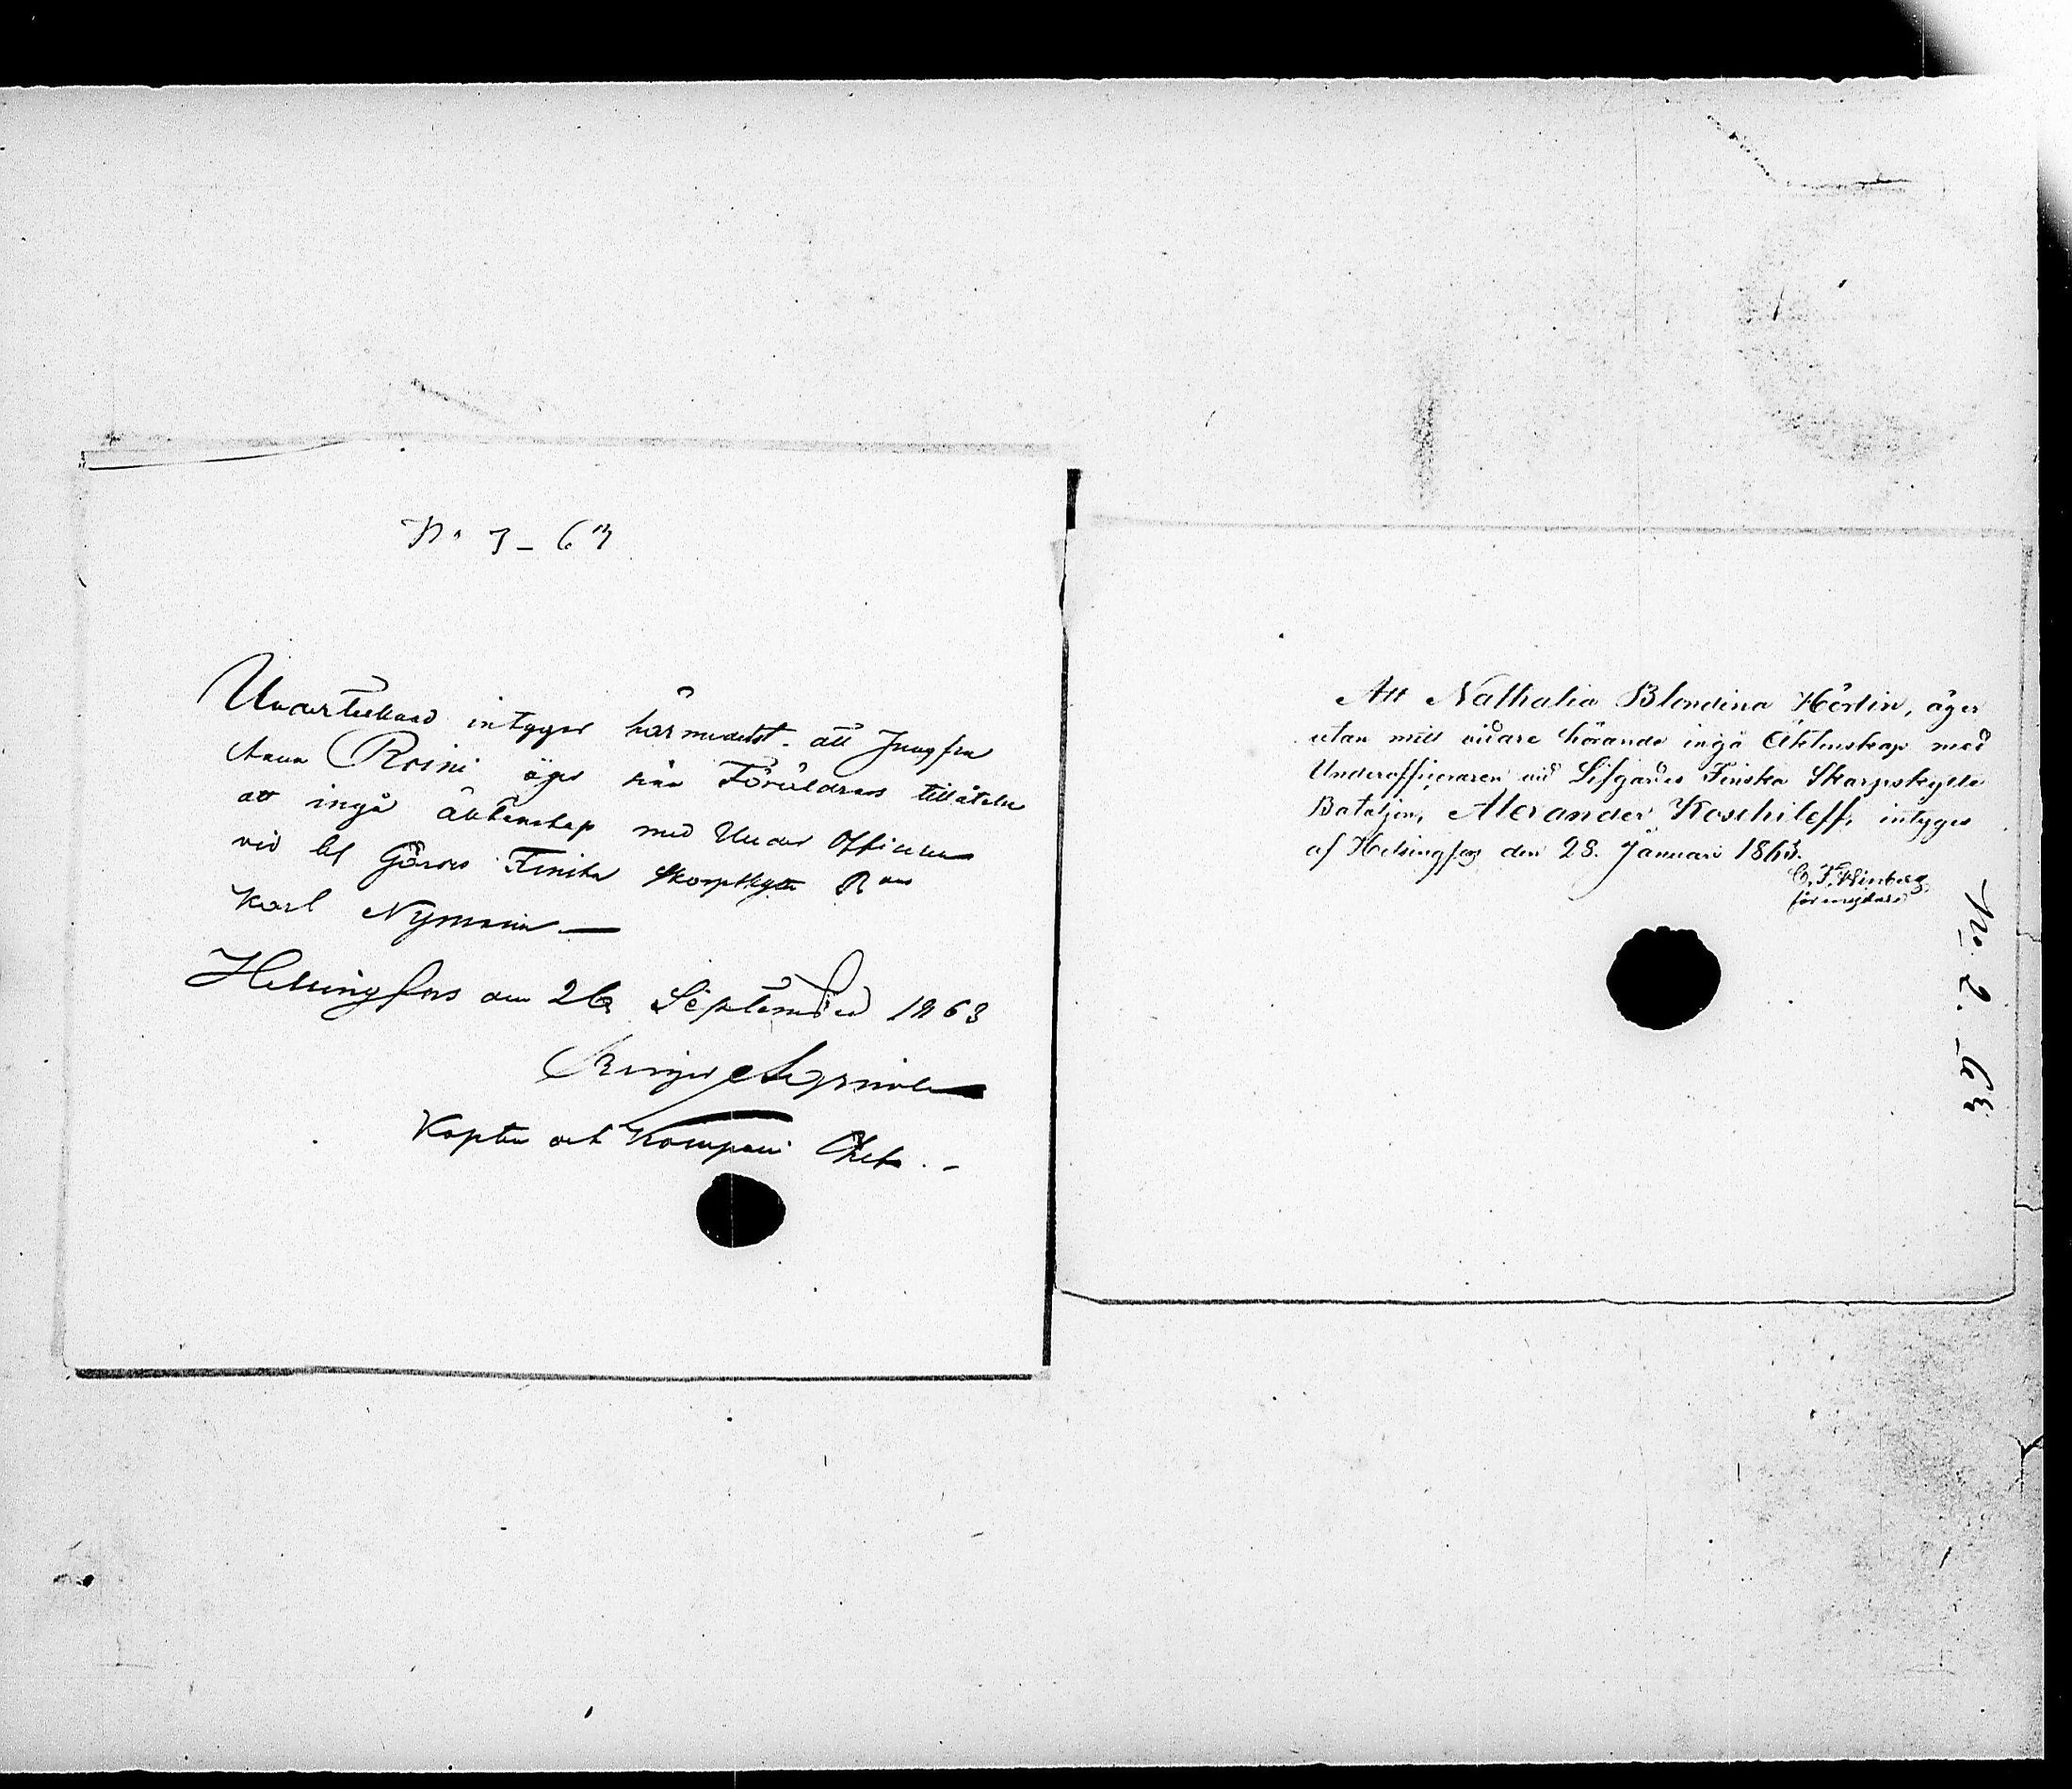 No 3 - 63
Undertecknad intygar härmedelst att Jungfru
Anna Roini äger sina Föräldrars tillåtelse
att ingå äktenskap med Under Officeren
vid Lif Gardes Finska Skarpskytte Bon
Karl Nyman
Helsingfors den 26 September 1863
Kapten och Kompani Chef. -
Att Nathalia Blondina Hördin, äger
utan mitt vidare hörande ingå Äktenskap med
Underofficeraren vid Lifgardes Finska Skarpskytte
Bataljon, Alexander Koschileff, intygas
af Helsingfors den 28. Januari 1863.
förmyndare
No. 2. - 63